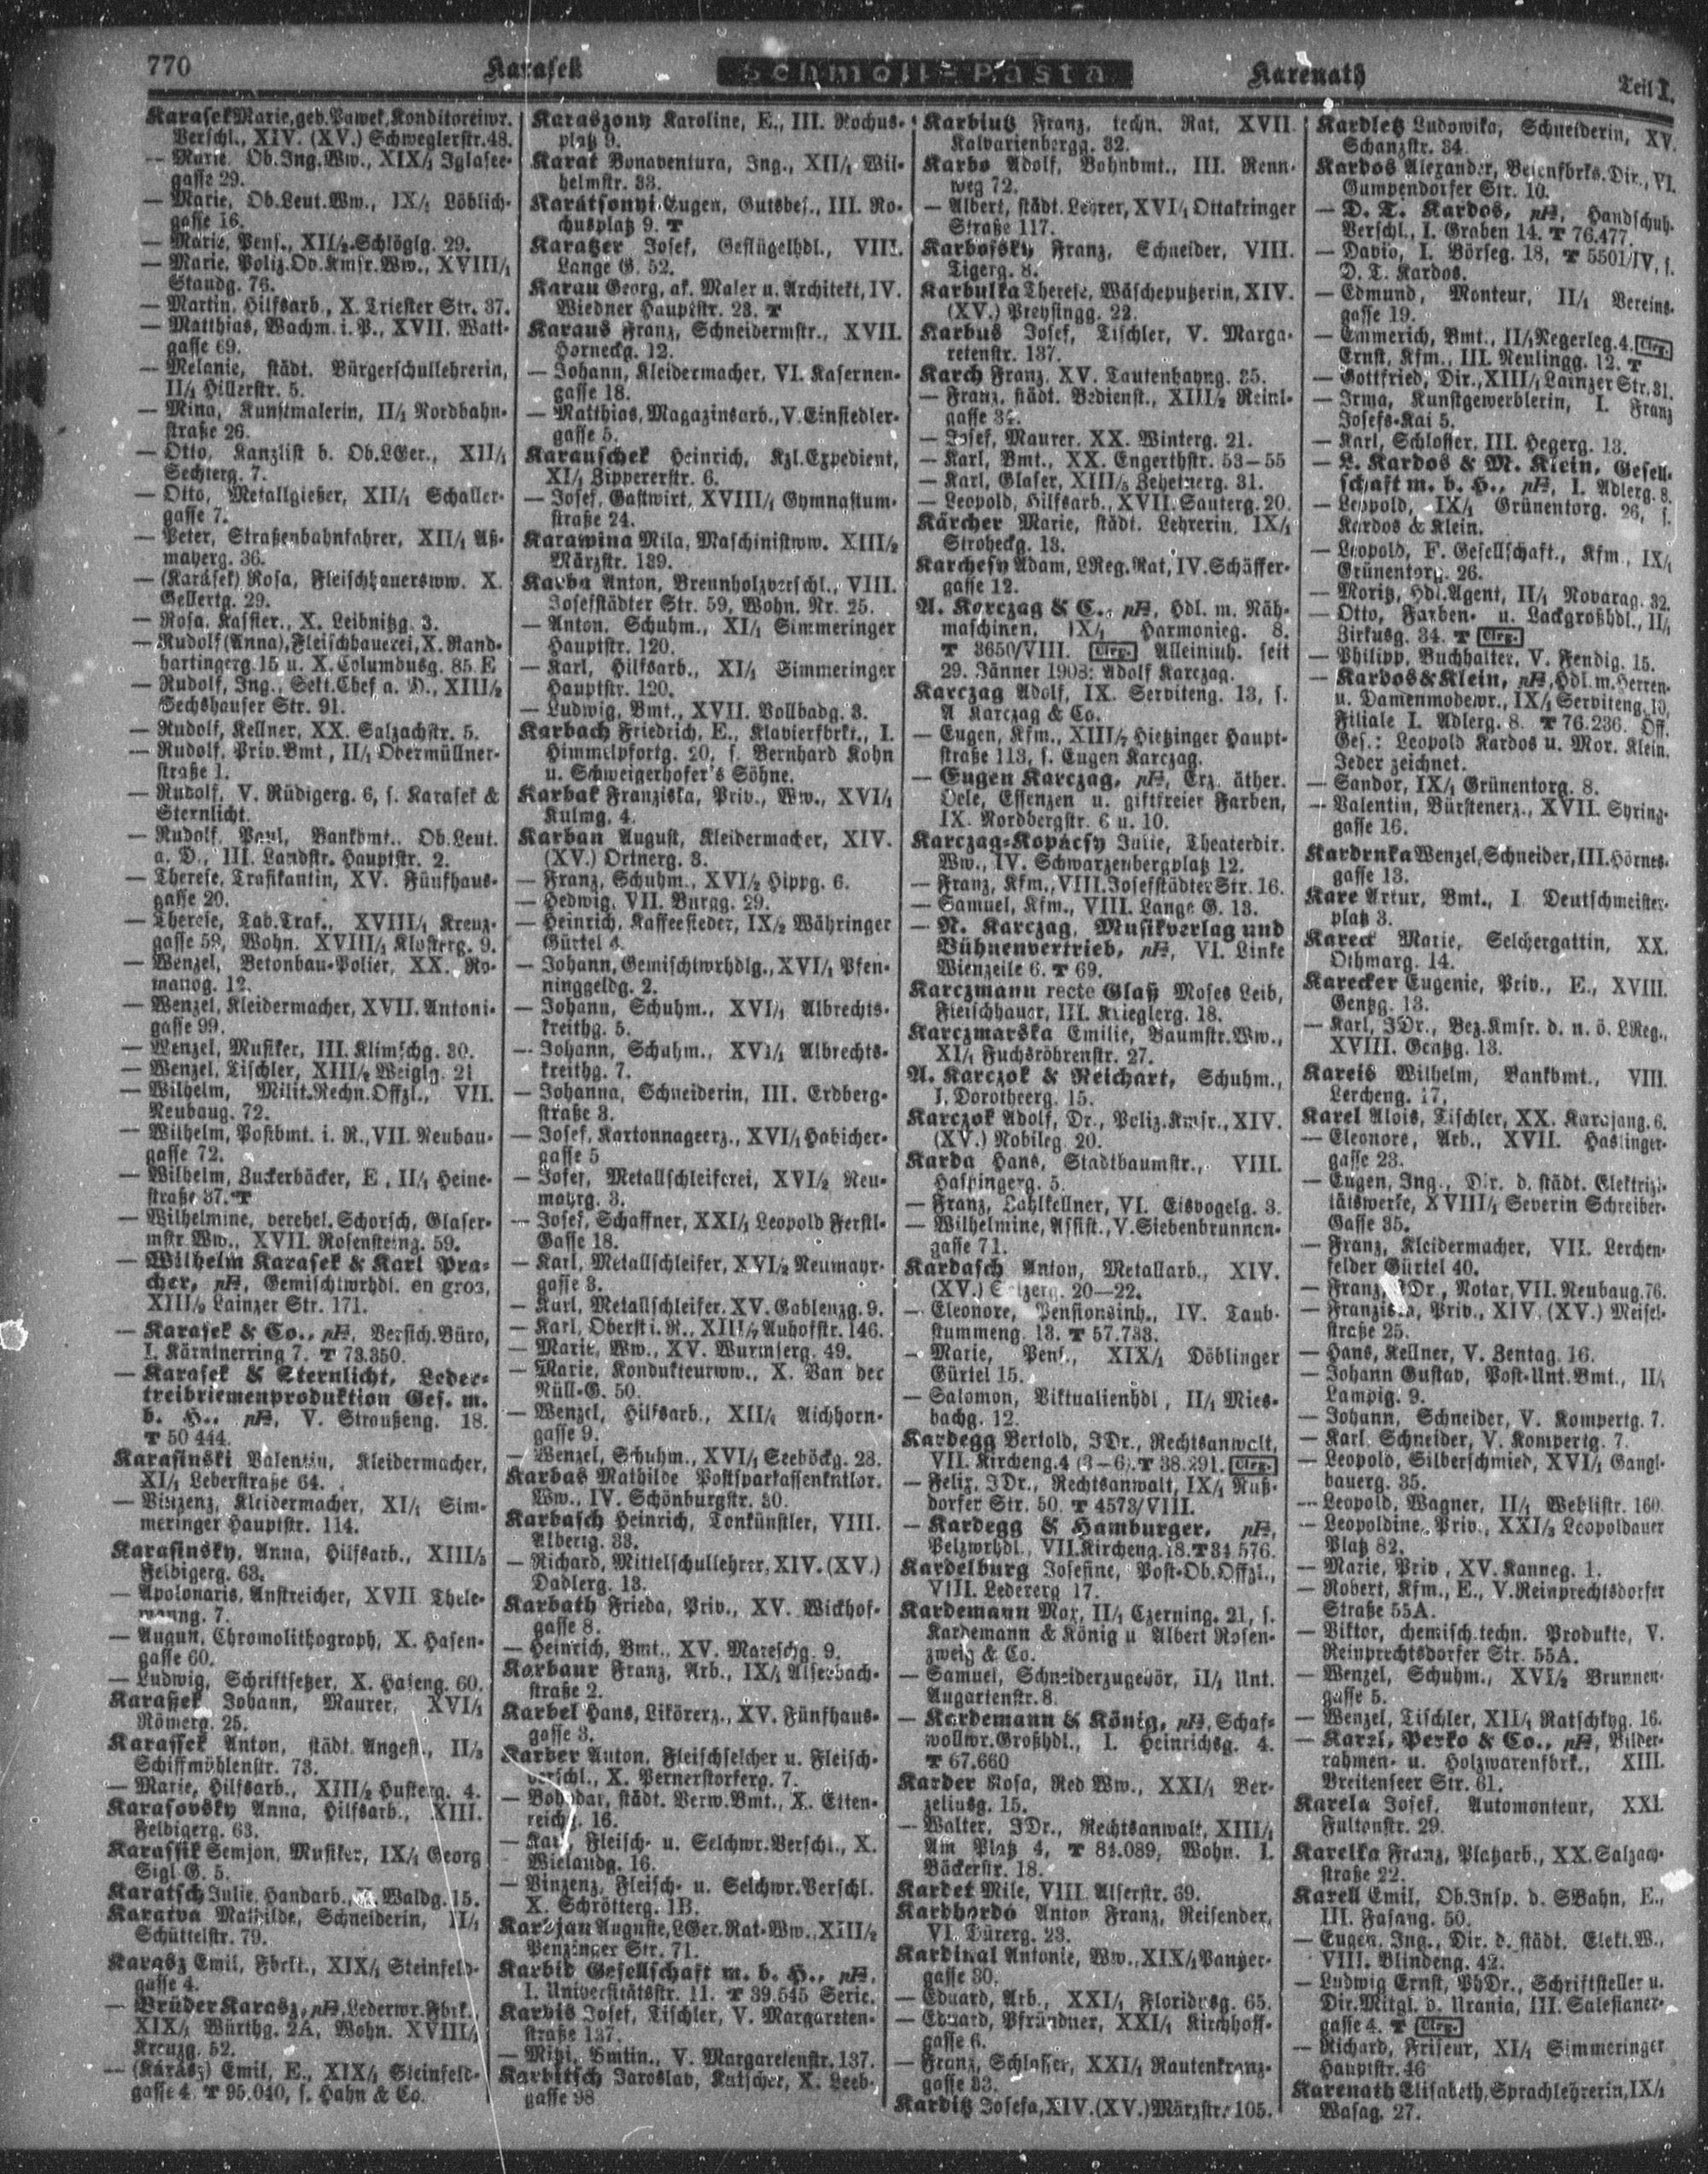 770
Karasek
Schmoll-Pasta
Karenath
Teil I.
Karasek Marie, geb. Pawek, Konditoreiwr.
Verschl., XIV. (XV.) Schweglerstr. 48.
— Marie, Ob.Ing.Ww., XIX/1 Iglasee-
gasse 29.
— Marie, Ob.Leut.Ww., IX/1 Löblich-
gasse 16.
— Marie, Pens., XII/2 Schlöglg. 29.
— Marie, Poliz.Ob.Kmsr.Ww., XVIII/1
Staudg. 76.
— Martin, Hilfsarb., X. Triester Str. 37.
— Matthias, Wachm. i. P., XVII. Watt-
gasse 69.
— Melanie, städt. Bürgerschullehrerin,
II/1 Hillerstr. 5.
— Mina, Kunstmalerin, II/1 Nordbahn-
straße 26.
— Otto, Kanzlist b. Ob.LGer., XII/1
Sechterg. 7.
— Otto, Metallgießer, XII/1 Schaller-
gasse 7.
— Peter, Straßenbahnfahrer, XII/1 Aß-
mayerg. 36.
— (Karásek) Rosa, Fleischhauersww. X.
Gellertg. 29.
— Rosa, Kassier., X. Leibnitzg. 3.
— Rudolf (Anna), Fleischhauerei, X. Rand-
hartingerg. 15 u. X. Columbusg. 85. E
— Rudolf, Ing., Sekt.Chef a. D., XIII/2
Sechshauser Str. 91.
— Rudolf, Kellner, XX. Salzachstr. 5.
— Rudolf, Priv.Bmt., II/1 Obermüllner-
straße 1.
— Rudolf, V. Rüdigerg. 6, s. Karasek &
Sternlicht.
— Rudolf, Paul, Bankbmt., Ob.Leut.
a. D., III. Landstr. Hauptstr. 2.
— Therese, Trafikantin, XV. Fünfhaus-
gasse 20.
— Therese, Tab.Traf., XVIII/1 Kreuz-
gasse 59, Wohn. XVIII/1 Klosterg. 9.
— Wenzel, Betonbau-Polier, XX. Ro-
manog. 12.
— Wenzel, Kleidermacher, XVII. Antoni-
gasse 99.
— Wenzel, Musiker, III. Klimschg. 30.
— Wenzel, Tischler, XIII/2 Weiglg. 21
— Wilhelm, Milit.Rechn.Offzl., VII.
Neubaug. 72.
— Wilhelm, Postbmt. i. R., VII. Neubau-
gasse 72.
— Wilhelm, Zuckerbäcker, E., II/1 Heine-
straße 37. T
— Wilhelmine, verehel. Schorsch, Glaser-
mstr.Ww., XVII. Rosensteing. 59.
— Wilhelm Karasek & Karl Pra-
cher, pH, Gemischtwrhdl. en gros,
XIII/2 Lainzer Str. 171.
— Karasek & Co., pH, Versich.Büro,
I. Kärntnerring 7. T 73.350.
— Karasek & Sternlicht, Leder-
treibriemenproduktion Ges. m.
b. H., pH, V. Straußeng. 18.
T 50 444.
Karasinski Valentin, Kleidermacher,
XI/1 Leberstraße 64.
— Vinzenz, Kleidermacher, XI/1 Sim-
meringer Hauptstr. 114.
Karasinsky, Anna, Hilfsarb., XIII/3
Feldigerg. 63.
— Apolonaris, Anstreicher, XVII Thele-
manng. 7.
— August, Chromolithograph, X. Hasen-
gasse 60.
— Ludwig, Schriftsetzer, X. Haseng. 60.
Karaßek Johann, Maurer, XVI/1
Römerg. 25.
Karassek Anton, städt. Angest., II/3
Schiffmühlenstr. 73.
— Marie, Hilfsarb., XIII/2 Husterg. 4.
Karasovsky Anna, Hilfsarb., XIII.
Feldigerg. 63.
Karassik Semjon, Musiker, IX/1 Georg
Sigl G. 5.
Karatsch Julie, Handarb., Waldg. 15.
Karatva Mathilde, Schneiderin, II/1
Schüttelstr. 79.
Karasz Emil, Fbrkt., XIX/1 Steinfeld-
gasse 4.
— Brüder Karasz, pH, Lederwr.Fbrk.,
XIX/1 Würthg. 2A, Wohn. XVIII/1
Kreuzg. 52.
— (Kárász) Emil, E., XIX/1 Steinfeld-
gasse 4. T 95.040, s. Hahn & Co.
Karaszony Karoline, E., III. Rochus-
platz 9.
Karat Bonaventura, Ing., XII/1 Wil-
helmstr. 33.
Karátsonyi Eugen, Gutsbes., III. Ro-
chusplatz 9. T
Karatzer Josef, Geflügelhdl., VIII.
Lange G. 52.
Karau Georg, ak. Maler u. Architekt, IV.
Wiedner Hauptstr. 23. T
Karaus Franz, Schneidermstr., XVII.
Horneckg. 12.
— Johann, Kleidermacher, VI. Kasernen-
gasse 18.
— Matthias, Magazinsarb., V. Einsiedler-
gasse 5.
Karauschek Heinrich, Kzl.Expedient,
XI/1 Zippererstr. 6.
— Josef, Gastwirt, XVIII/1 Gymnasium-
straße 24.
Karawina Mila, Maschinistww. XIII/2
Märzstr. 139.
Karba Anton, Brennholzverschl., VIII.
Josefstädter Str. 59, Wohn. Nr. 25.
— Anton, Schuhm., XI/1 Simmeringer
Hauptstr. 120.
— Karl, Hilfsarb., XI/1 Simmeringer
Hauptstr. 120.
— Ludwig, Bmt., XVII. Vollbadg. 3.
Karbach Friedrich, E., Klavierfbrkt., I.
Himmelpfortg. 20, s. Bernhard Kohn
u. Schweigerhofer's Söhne.
Karbak Franziska, Priv., Ww., XVI/1
Kulmg. 4.
Karban August, Kleidermacher, XIV.
(XV.) Ortnerg. 3.
— Franz, Schuhm., XVI/2 Hippg. 6.
— Hedwig, VII. Burgg. 29.
— Heinrich, Kaffeesieder, IX/2 Währinger
Gürtel 4.
— Johann, Gemischtwrhdlg., XVI/1 Pfen-
ninggeldg. 2.
— Johann, Schuhm., XVI/1 Albrechts-
kreithg. 5.
— Johann, Schuhm., XVI/1 Albrechts-
kreithg. 7.
— Johanna, Schneiderin, III. Erdberg-
straße 3.
— Josef, Kartonnageerz., XVI/1 Habicher-
gasse 5
— Josef, Metallschleiferei, XVI/2 Neu-
mayrg. 3.
— Josef, Schaffner, XXI/1 Leopold Ferstl-
Gasse 18.
— Karl, Metallschleifer, XVI/2 Neumayr-
gasse 3.
— Karl, Metallschleifer, XV. Gablenzg. 9.
— Karl, Oberst i. R., XIII/7 Auhofstr. 146.
— Marie, Ww., XV. Wurmserg. 49.
— Marie, Kondukteurww., X. Van der
Nüll-G. 50.
— Wenzel, Hilfsarb., XII/1 Aichhorn-
gasse 9.
— Wenzel, Schuhm., XVI/1 Seeböckg. 28.
Karbas Mathilde Postsparkassenkntlor.
Ww., IV. Schönburgstr. 30.
Karbasch Heinrich, Tonkünstler, VIII.
Albertg. 33.
— Richard, Mittelschullehrer, XIV. (XV.)
Dadlerg. 13.
Karbath Frieda, Priv., XV. Wickhof-
gasse 8.
— Heinrich, Bmt., XV. Mareschg. 9.
Karbaur Franz, Arb., IX/1 Alserbach-
straße 2.
Karbel Hans, Likörerz., XV. Fünfhaus-
gasse 3.
Karber Anton, Fleischselcher u. Fleisch-
verschl., X. Pernerstorferg. 7.
— Bohodar, städt. Verw.Bmt., X. Etten-
reichg. 16.
— Karl, Fleisch- u. Selchwr.Verschl., X.
Wielandg. 16.
— Vinzenz, Fleisch- u. Selchwr.Verschl.
X. Schrötterg. 1B.
Karbejan Auguste, LGer.Rat-Ww., XIII/2
Penzinger Str. 71.
Karbid Gesellschaft m. b. H., pH,
I. Universitätsstr. 11. T 39.545 Serie.
Karbis Josef, Tischler, V. Margareten-
straße 137.
— Mitzi, Bmtin., V. Margaretenstr. 137.
Karbitsch Jaroslav, Kutscher, X. Leeb-
gasse 98
Karbiutz Franz, techn. Rat, XVII.
Kalvarienbergg. 32.
Karbo Adolf, Bahnbmt., III. Renn-
weg 72.
— Albert, städt. Lehrer, XVI/1 Ottakringer
Straße 117.
Karbofsky Franz, Schneider, VIII.
Tigerg. 8.
Karbulka Therese, Wäscheputzerin, XIV.
(XV.) Preysingg. 22.
Karbus Josef, Tischler, V. Marga-
retenstr. 137.
Karch Franz, XV. Tautenhayng. 35.
— Franz, städt. Bedienst., XIII/2 Reinl-
gasse 34.
— Josef, Maurer, XX. Winterg. 21.
— Karl, Bmt., XX. Engerthstr. 53—55
— Karl, Glaser, XIII/5 Zehetnerg. 31.
— Leopold, Hilfsarb., XVII. Sauterg. 20.
Kärcher Marie, städt. Lehrerin, IX/1
Strobeckg. 13.
Karchesy Adam, LReg.Rat, IV. Schäffer-
gasse 12.
A. Karczag & C., pH, Hdl. m. Näh-
maschinen, IX/1 Harmonieg. 8.
T 3650/VIII. Clrg. Alleininh. seit
29. Jänner 1908: Adolf Karczag.
Karczag Adolf, IX. Serviteng. 13, s.
A Karczag & Co.
— Eugen, Kfm., XIII/7 Hietzinger Haupt-
straße 113, s. Eugen Karczag.
— Eugen Karczag, pH, Erz. äther.
Oele, Essenzen u. giftfreier Farben,
IX. Nordbergstr. 6 u. 10.
Karczag-Kopácsy Julie, Theaterdir.
Ww., IV. Schwarzenbergplatz 12.
— Franz, Kfm., VIII. Josefstädter Str. 16.
— Samuel, Kfm., VIII. Lange G. 13.
— N. Karczag, Musikverlag und
Bühnenvertrieb, pH, VI. Linke
Wienzeile 6. T 69.
Karczmann recte Glaß Moses Leib,
Fleischhauer, III. Krieglerg. 18.
Karczmarska Emilie, Baumstr.Ww.,
XI/1 Fuchsröhrenstr. 27.
A. Karczok & Reichart, Schuhm.,
I. Dorotheerg. 15.
Karczok Adolf, Dr., Poliz.Kmsr., XIV.
(XV.) Nobileg. 20.
Karda Hans, Stadtbaumstr., VIII.
Haspingerg. 5.
— Franz, Zahlkellner, VI. Eisvogelg. 3.
— Wilhelmine, Assist., V. Siebenbrunnen-
gasse 71.
Kardasch Anton, Metallarb., XIV.
(XV.) 20—22.
— Eleonore, Pensionsinh., IV. Taub-
stummeng. 13. T 57.733.
— Marie, Pens., XIX/1 Döblinger
Gürtel 15.
— Salomon, Viktualienhdl., II/1 Mies-
bachg. 12.
Kardegg Bertold, JDr., Rechtsanwalt,
VII. Kircheng. 4 (3—6). T 38.291. Clrg.
— Felix, JDr., Rechtsanwalt, IX/1 Nuß-
dorfer Str. 50. T 4573/VIII.
— Kardegg & Hamburger, pH,
Pelzwrhdl., VII. Kircheng. 18. T 34.576.
Kardelburg Josefine, Post-Ob.Offzl.,
VIII. Ledererg 17.
Kardemann Max, II/1 Czerning. 21, s.
Kardemann & König u Albert Rosen-
zweig & Co.
— Samuel, Schneiderzugehör, II/1 Unt.
Augartenstr. 8.
— Kardemann & König, pH, Schaf-
wollwr.Großhdl., I. Heinrichsg. 4.
T 67.660
Karder Rosa, Red Ww., XXI/1 Ber-
zeliusg. 15.
— Walter, JDr., Rechtsanwalt, XIII/1
Am Platz 4, T 84.089, Wohn. I.
Bäckerstr. 18.
Kardet Mile, VIII. Alserstr. 69.
Kardhordó Anton Franz, Reisender,
VI. Dürerg. 23.
Kardinal Antonie, Ww., XIX/1 Panzer-
gasse 30.
— Eduard, Arb., XXI/1 Floridusg. 65.
— Eduard, Pfründner, XXI/1 Kirchhoff-
gasse 6.
— Franz, Schlosser, XXI/1 Rautenkranz-
gasse 33.
Karditz Josefa, XIV. (XV.) Märzstr. 105.
Kardletz Ludowika, Schneiderin, XV.
Schanzstr. 34.
Kardos Alexander, Beienfbrks.Dir., VI.
Gumpendorfer Str. 10.
— D. T. Kardos, pH, Handschuh-
Verschl., I. Graben 14. T 76.477.
— David, I. Börseg. 18, T 5501/IV, s.
D. T. Kardos.
— Edmund, Monteur, II/1 Vereins-
gasse 19.
— Emmerich, Bmt., II/1 Negerleg. 4. Clrg.
Ernst, Kfm., III. Reulingg. 12. T
— Gottfried, Dir., XIII/1 Lainzer Str. 31.
— Irma, Kunstgewerblerin, I. Franz
Josefs-Kai 5.
— Karl, Schlosser, III. Hegerg. 13.
— L. Kardos & M. Klein, Gesell-
schaft m. b. H., pH, I. Adlerg. 8.
— Leopold, IX/1 Grünentorg. 26, s.
Kardos & Klein.
— Leopold, F. Gesellschaft., Kfm., IX/1
Grünentorg. 26.
— Moritz, Hdl.Agent, II/1 Novarag. 32.
— Otto, Farben- u. Lackgroßhdl., II/1
Zirkusg. 34. T Clrg.
— Philipp, Buchhalter, V. Fendig. 15.
— Kardos & Klein, pH, Hdl. m. Herren-
u. Damenmodewr., IX/1 Serviteng. 10,
Filiale I. Adlerg. 8. T 76.236. Öff.
Ges.: Leopold Kardos u. Mor. Klein.
Jeder zeichnet.
— Sandor, IX/1 Grünentorg. 8.
— Valentin, Bürstenerz., XVII. Syring-
gasse 16.
Kardrnka Wenzel, Schneider, III. Hörnes-
gasse 13.
Kare Artur, Bmt., I Deutschmeister-
platz 3.
Kareck Marie, Selchergattin, XX.
Othmarg. 14.
Karecker Eugenie, Priv., E., XVIII.
Gentzg. 13.
— Karl, JDr., Bez.Kmsr. d. n. ö. LReg.,
XVIII. Gentzg. 13.
Kareis Wilhelm, Bankbmt., VIII.
Lercheng. 17.
Karel Alois, Tischler, XX. Karajang. 6.
— Eleonore, Arb., XVII. Haslinger-
gasse 23.
— Eugen, Ing., Dir. d. städt. Elektrizi-
tätswerke, XVIII/1 Severin Schreiber-
Gasse 35.
— Franz, Kleidermacher, VII. Lerchen-
felder Gürtel 40.
— Franz, JDr., Notar, VII. Neubaug. 76.
— Franziska, Priv., XIV. (XV.) Meisel-
straße 25.
— Hans, Kellner, V. Zentag. 16.
— Johann Gustav, Post-Unt.Bmt., II/1
Lampig. 9.
— Johann, Schneider, V. Kompertg. 7.
— Karl, Schneider, V. Kompertg. 7.
— Leopold, Silberschmied, XVI/1 Gangl-
bauerg. 35.
— Leopold, Wagner, II/1 Wehlistr. 160.
— Leopoldine, Priv., XXI/3 Leopoldauer
Platz 82.
— Marie, Priv., XV. Kanneg. 1.
— Robert, Kfm., E., V. Reinprechtsdorfer
Straße 55A.
— Viktor, chemisch.techn. Produkte, V.
Reinprechtsdorfer Str. 55A.
— Wenzel, Schuhm., XVI/2 Brunnen-
gasse 5.
— Wenzel, Tischler, XII/1 Ratschkyg. 16.
— Karel, Perko & Co., pH, Bilder-
rahmen- u. Holzwarenfbrk., XIII.
Breitenseer Str. 61.
Karela Josef, Automonteur, XXI.
Fultonstr. 29.
Karelka Franz, Platzarb., XX. Salzach-
straße 22.
Karell Emil, Ob.Insp. d. SBahn, E.,
III. Fasang. 50.
— Eugen, Ing., Dir. d. städt. Elekt.W.,
VIII. Blindeng. 42.
— Ludwig Ernst, PhDr., Schriftsteller u.
Dir.Mitgl. d. Urania, III. Salesianer-
gasse 4. T Clrg.
— Richard, Friseur, XI/1 Simmeringer
Hauptstr. 46
Karenath Elisabeth, Sprachlehrerin, IX/1
Wasag. 27.